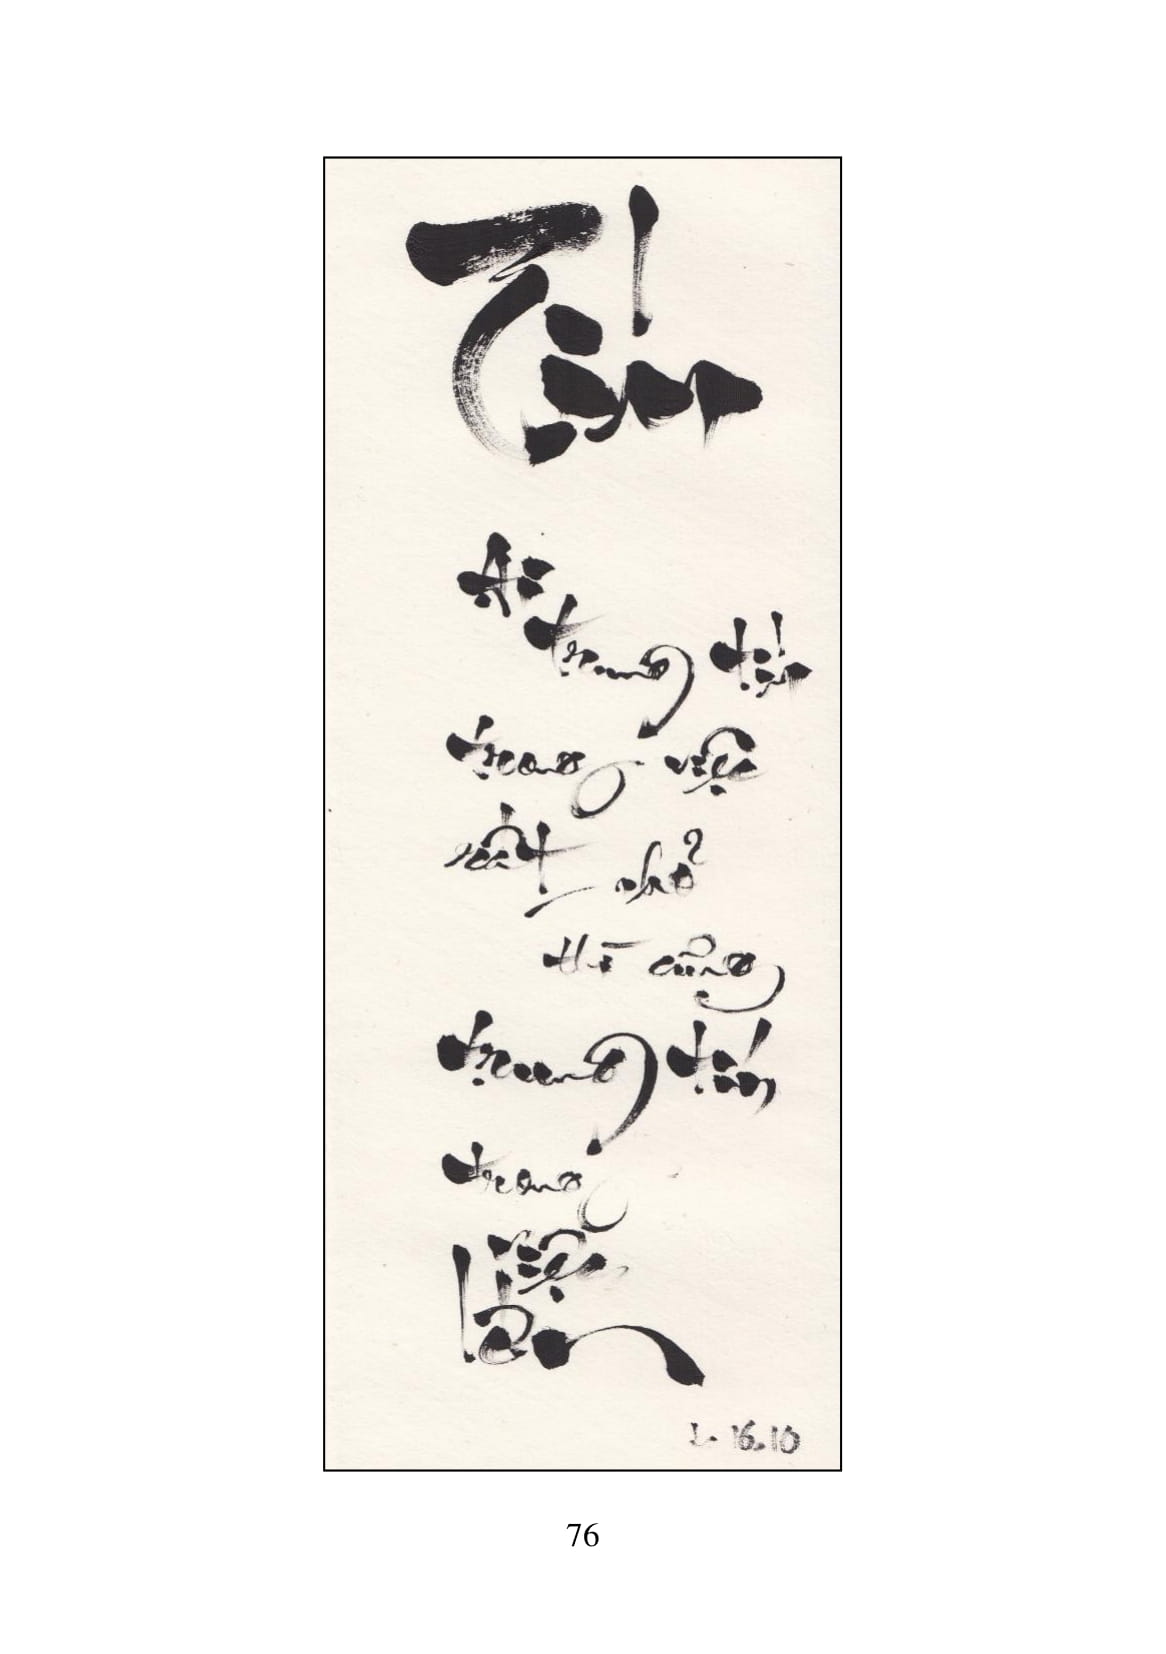 Tín
Ai
trung tín
trong việc
rất nhỏ
thì cũng
trung tín
trong
việc
lớn
L. 16.10
76